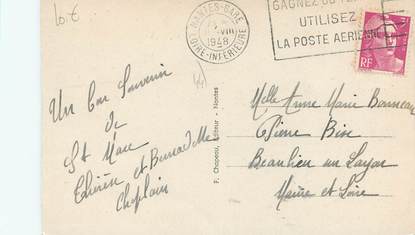 Loire
NANTES-GARE
VIII
1948
LOIRE-INFERIEURE
GAGNEZ DU TEMPS
UTILISEZ
LA POSTE AERIENNE
RF
44
Un bon Souvenir
de
St Marc
Thérèse et Bernadette
Choplain
F. Chapeau, Editeur - Nantes
Melle Anne Marie Bonneau
Pierre Bise
Beaulieu sur Layon
Maine et Loire